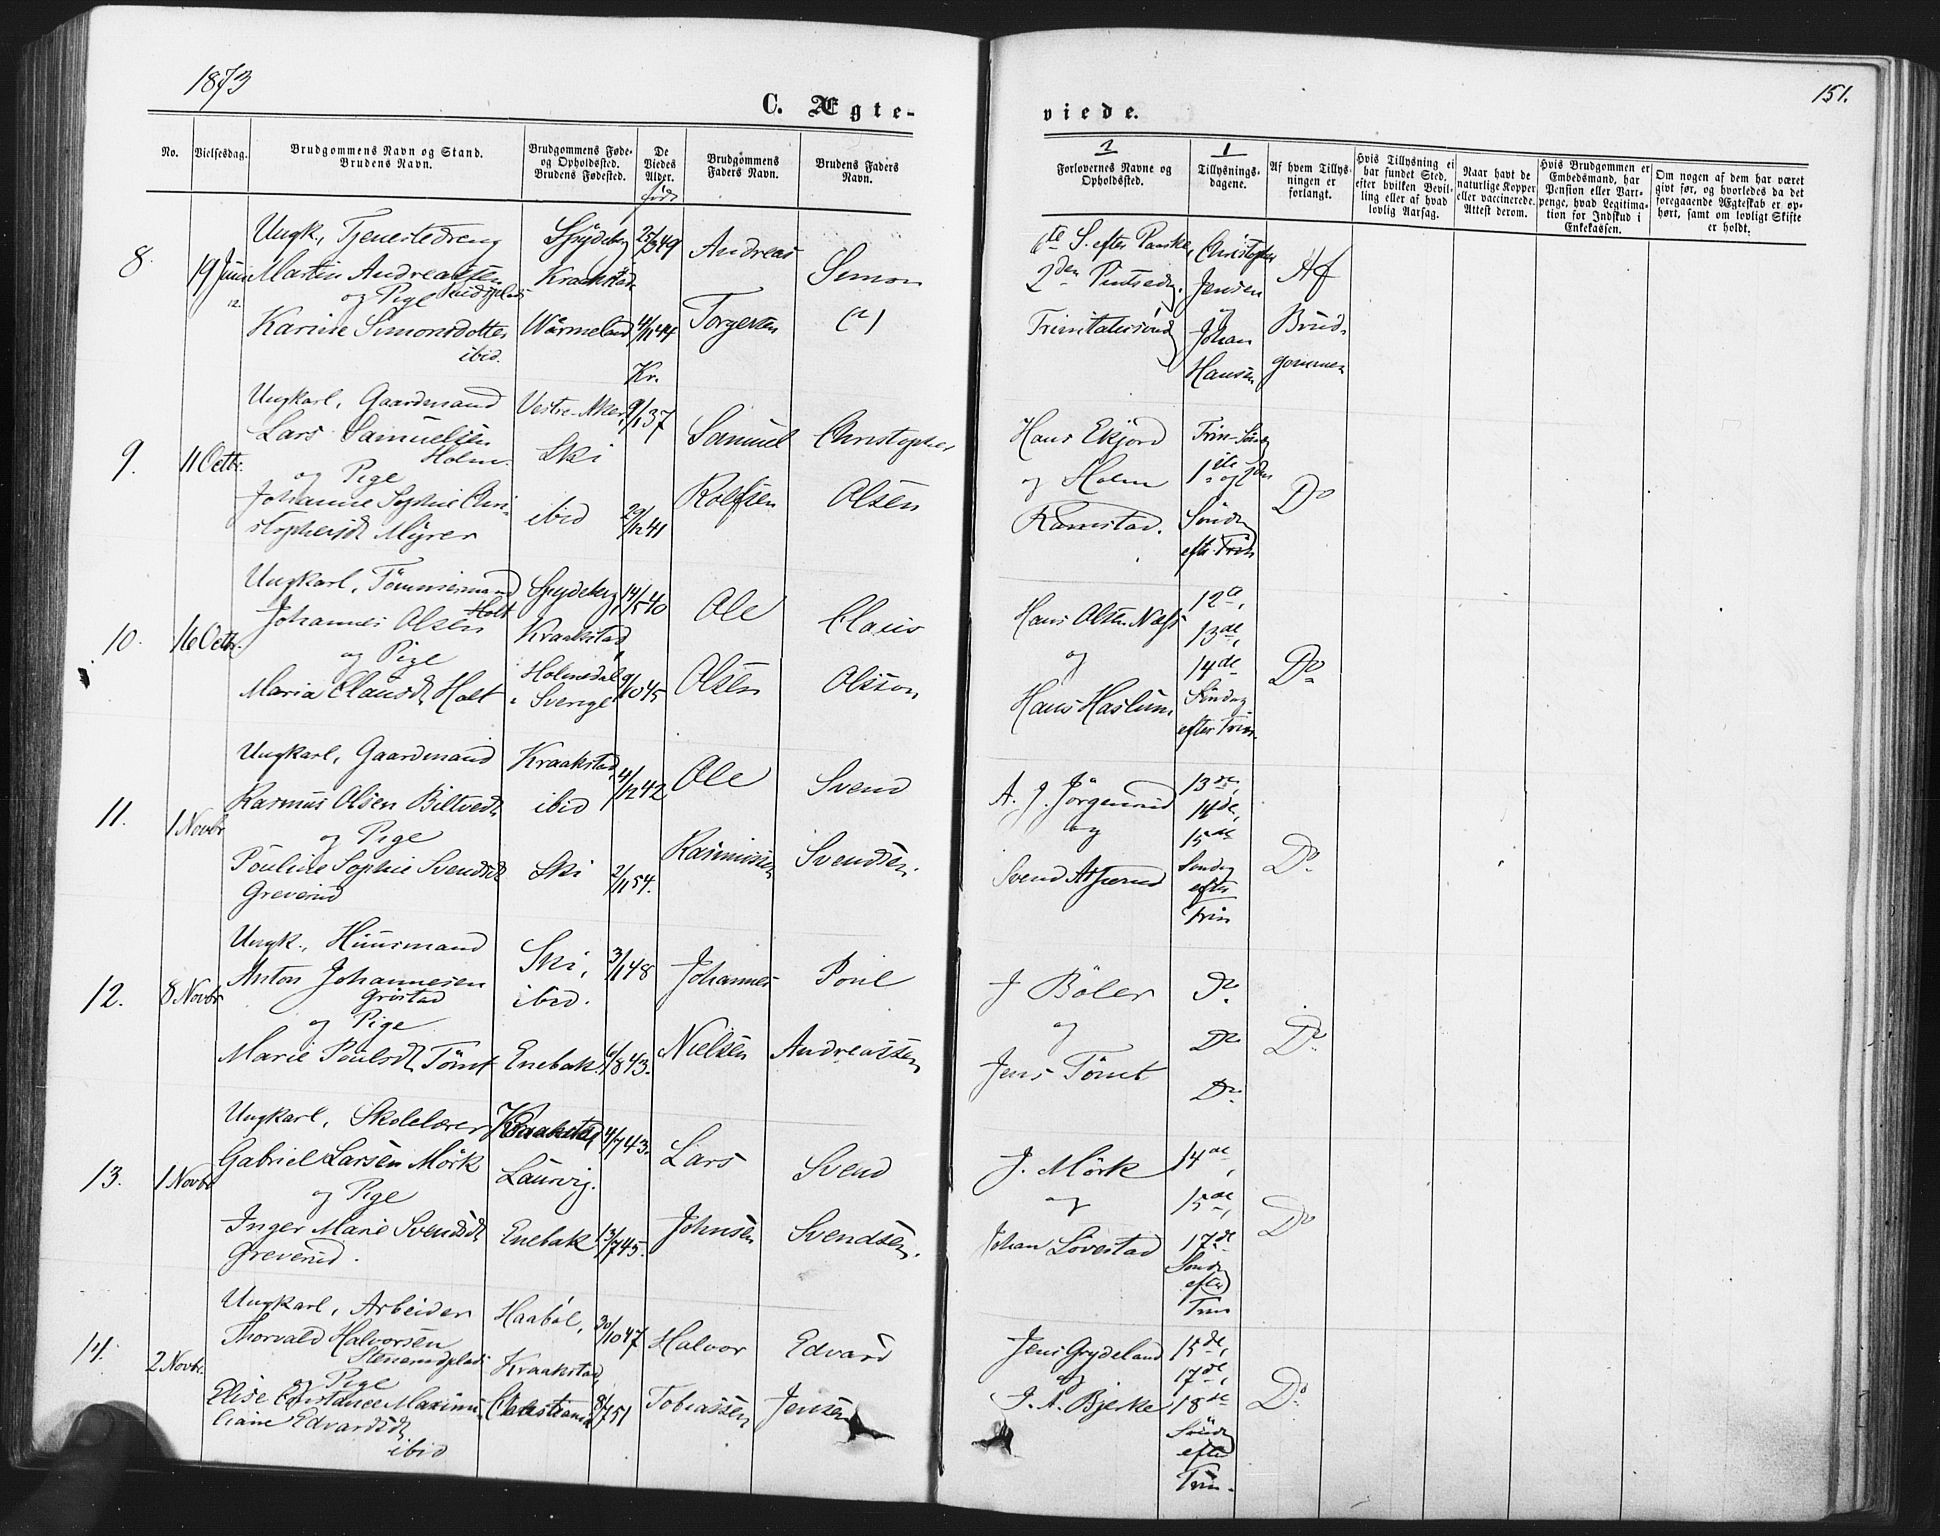 1873
151.
C. Ægte-
viede.
No.
Vielsesdag.
Brudgommens Navn og Stand.
Brudens Navn.
Brudgommens Føde-
og Opholdssted.
Brudens Fødested.
De
Viedes
Alder.
Brudgommens
Faders Navn.
Brudens Faders
Navn.
1
Forlovernes Navne og
Opholdssted.
1
Tillysnings-
dagene.
Af hvem Tillys-
ningen er
forlangt.
Hvis Tillysning ei
har fundet Sted,
efter hvilken Bevil-
ling eller af hvad
lovlig Aarsag.
Naar havt de
naturlige Kopper
eller vaccinerede.
Attest derom.
Hvis Brudgommen er
Embedsmand, har
Pension eller Vart-
penge, hvad Legitima-
tion for Indskud i
Enkekassen.
Om nogen af dem har været
givt før, og hvorledes da det
foregaaende Ægteskab er op-
hørt, samt om lovligt Skifte
er holdt.
8.
19 Juni
Ungk., Tjenestedreng
Martin Andreassen
og Pige
Karine Simonsdotter
ibid.
Spydeberg
Kraakstad
Wärmeland
25/3 49
4/11 44
Kr.
Andreas
Torgersen
Simon
(?)
6te S. efter Paaske,
2den Pintsedag,
Trinitatissønd
Christopher
Jensen
og
Johan
Hansen
Af
Brud-
gommen
9.
11 Octbr.
Ungkarl, Gaardmand
Lars Samuelsen
Holm.
og Pige
Johanne Sophie Chri-
stophersdt Myrer
Vestre-Aker
Ski
ibid
9/1 37
29/12 41
Samuel
Rolfsen
Christopher
Olsen
Hans Ekjord
og Holm
Ramstad.
Trin-Sønd
1ste og 2den
Sønd
eft. Trin
Do
10.
16 Octbr.
Ungkarl, Tømmermand
Johannes Olsen Holt
og Pige
Maria Clausdt Holt
Spydeberg,
Kraakstad,
Holmedal
i Sverige
14/5 40
9/10 45
Ole
Olsen
Claus
Olsson
Hans Olsen Næss
og
Hans Haslum
12te,
13de,
14de
Søndag
efter Trin.
Do
11.
1 Novbr
Ungkarl, Gaardmand
Rasmus Olsen Biltvedt
og Pige
Pouline Sophie Svendsdt
Greverud
Kraakstad,
ibid
Ski
4/12 42
2/11 54.
Ole
Rasmussen
Svend
Svendsen.
A. J. Jørgensrud
og
Svend
13de,
14de,
15de
Søndag
efter
Trin
Do
12.
8 Novbr
Ungk., Huusmand
Anton Johannesen
Grøstad
og Pige
Marie Poulsdt Tømt
Ski,
ibid.
Enebak
3/1 48
6/8 43.
Johannes
Nielsen
Poul
Andreassen
J Bøler
og
Jens Tømt
Do
Do
Do
Do
13.
1 Novbr
Ungkarl, Skolelærer
Gabriel Larsen Mørk
og Pige
Inger Marie Svendsdt
Greverud.
Kraakstad
Laurvig.
Enebak
4/7 43.
13/7 45.
Lars
Johnsen
Svend
Svendsen.
J. Mørk
og
Johan Løvestad
14de,
15de,
17de
Sønd
efter
Trin
Do
14.
2 Novbr.
Ungkarl, Arbeider
Thorvald Halvorsen
Stenerudplads
og Pige
Elise Constance Maximi-
liane Edvardsdt
ibid
Haabøl,
Kraakstad,
Christiania
30/10 47
8/7 51
Halvor
Tobiassen
Edvard
Jensen
Jens Grydeland
og
J. A. Bjerke
15de,
17de,
18de
Sønd
efter
Trin.
Do